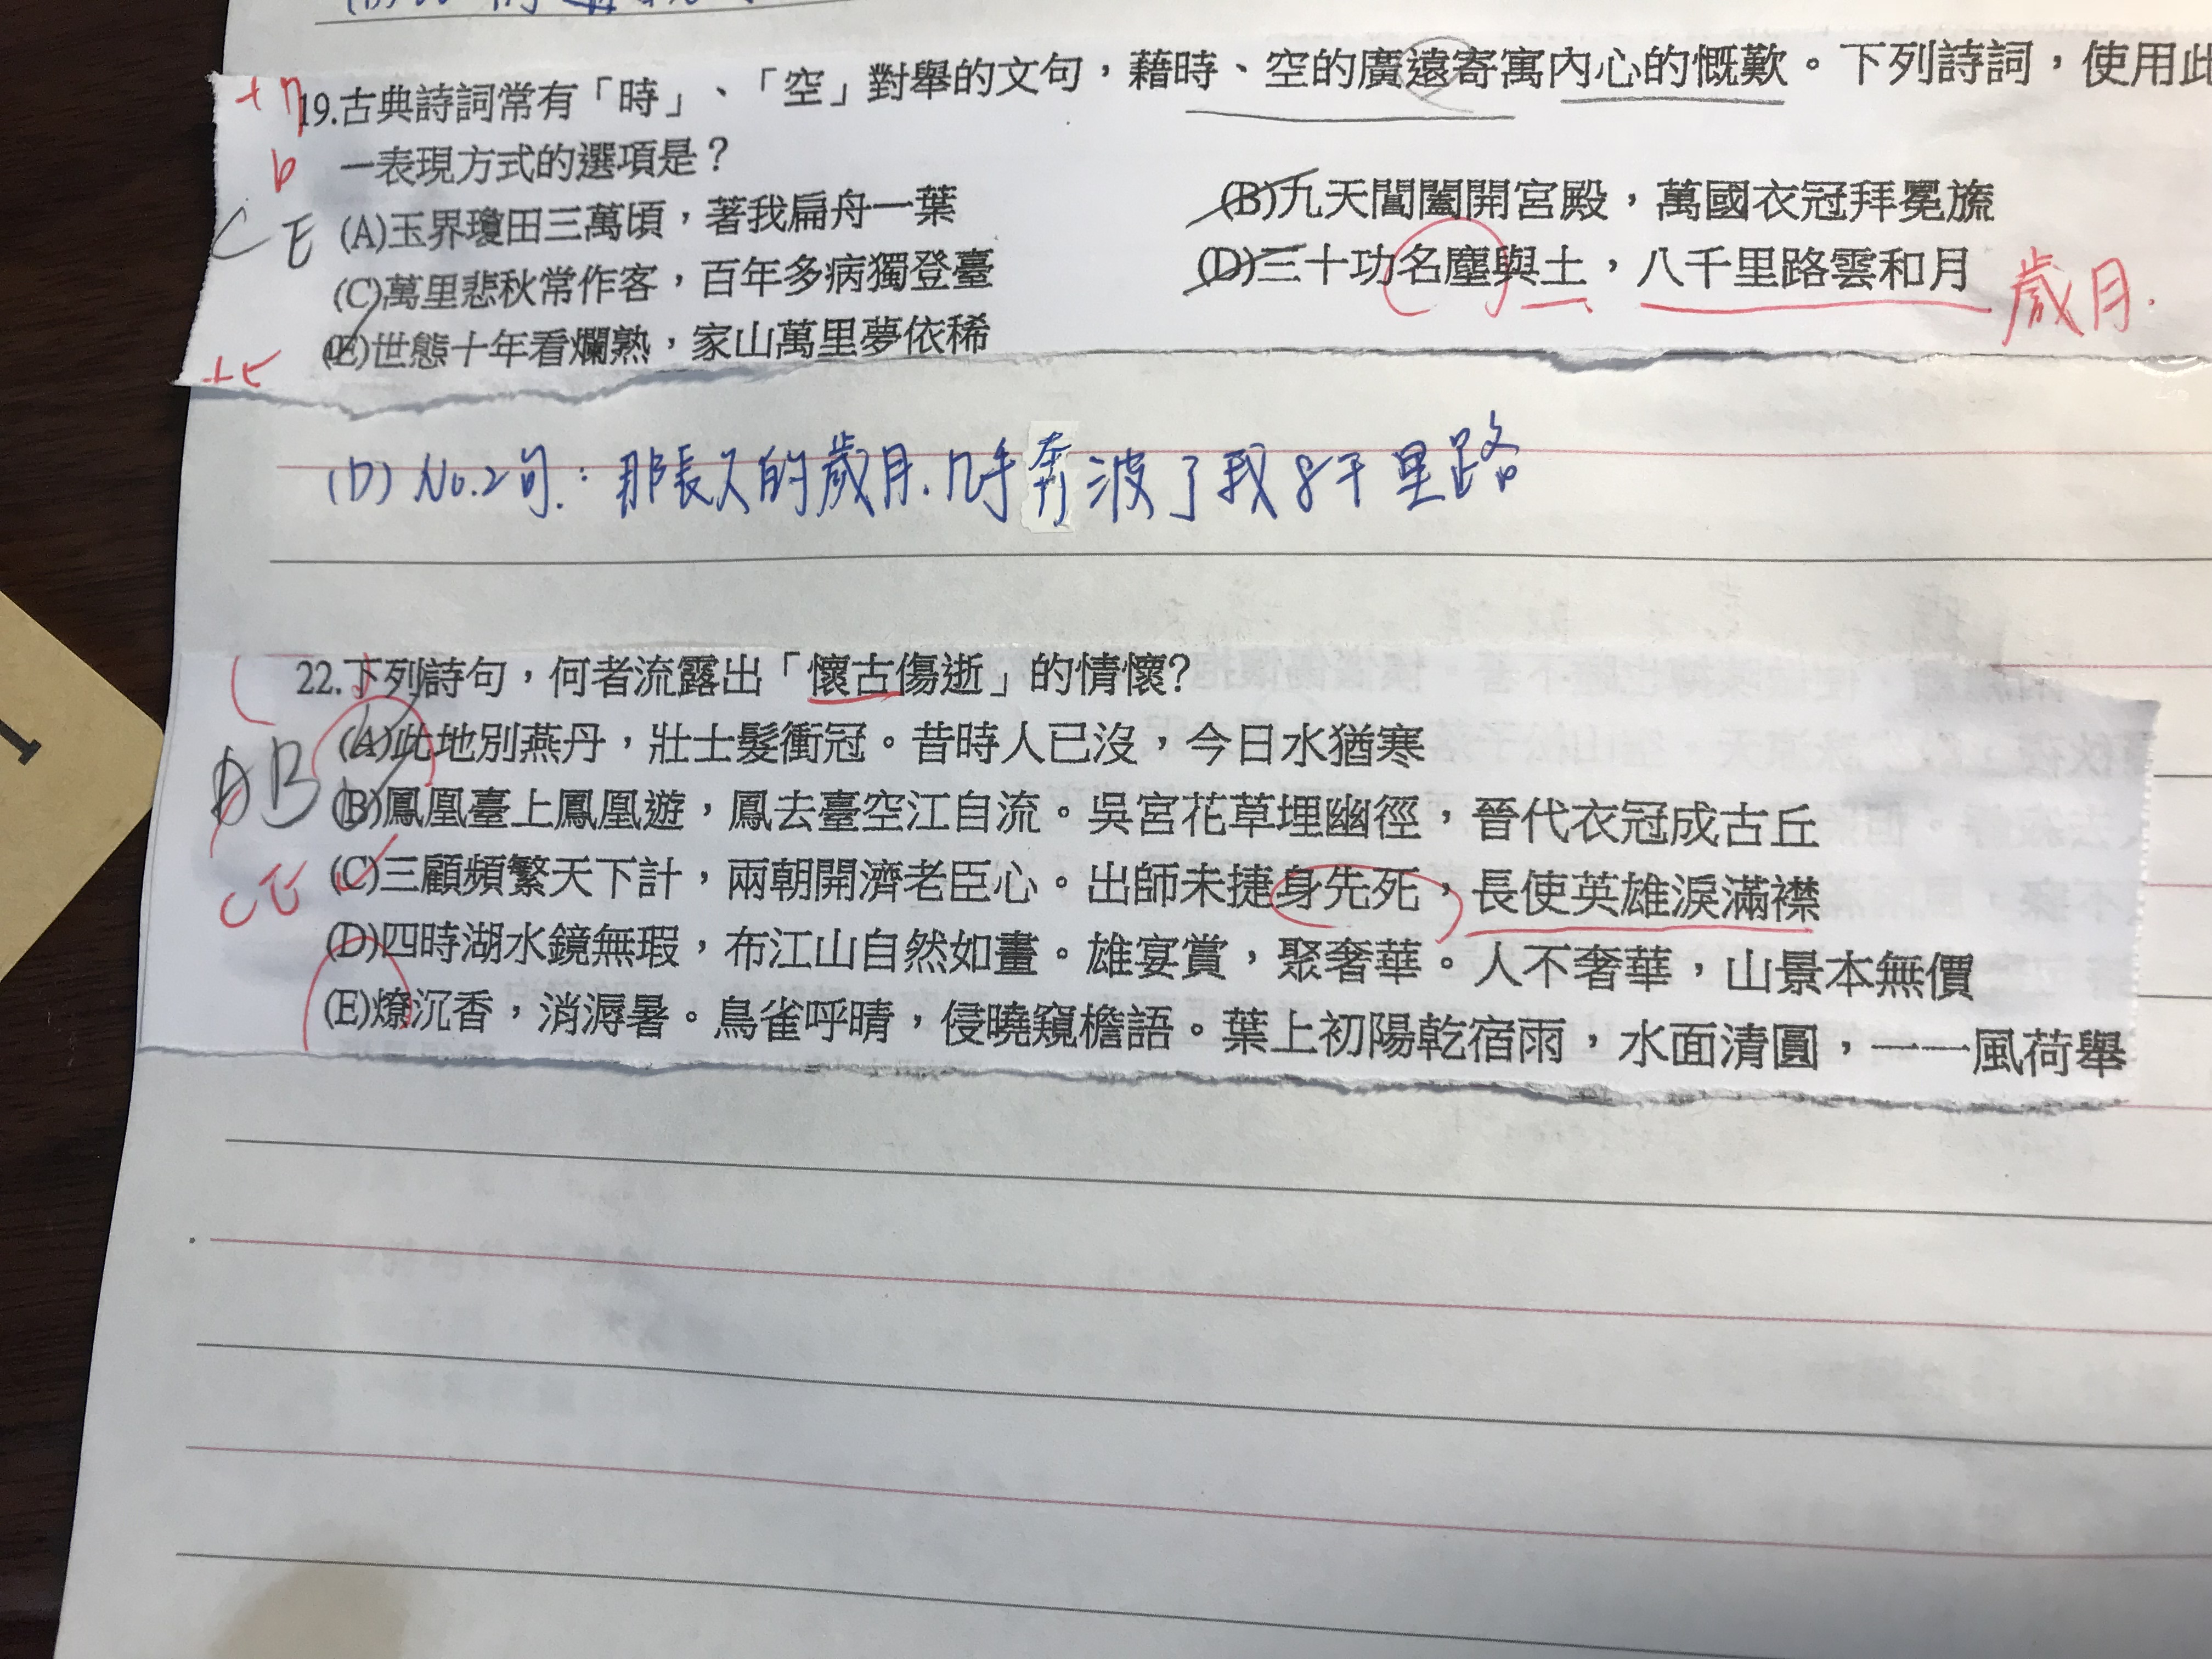 19.古典詩詞常有「時」、「空」對舉的文句，藉時、空的廣遠寄寓內心的慨歎。下列詩詞，使用此
一表現方式的選項是？
CE
(A)玉界瓊田三萬頃，著我扁舟一葉
(B)九天閶闔開宮殿，萬國衣冠拜冕旒
(C)萬里悲秋常作客，百年多病獨登臺
(D)三十功名塵與土，八千里路雲和月
歲月.
(E)世態十年看爛熟，家山萬里夢依稀
(D) No.2句: 那長久的歲月.几乎奔波了我8千里路
22.下列詩句，何者流露出「懷古傷逝」的情懷?
(A)此地別燕丹，壯士髮衝冠。昔時人已沒，今日水猶寒
AB
(B)鳳凰臺上鳳凰遊，鳳去臺空江自流。吳宮花草埋幽徑，晉代衣冠成古丘
(C)三顧頻繁天下計，兩朝開濟老臣心。出師未捷身先死，長使英雄淚滿襟
(D)四時湖水鏡無瑕，布江山自然如畫。雄宴賞，聚奢華。人不奢華，山景本無價
(E)燎沉香，消溽暑。鳥雀呼晴，侵曉窺檐語。葉上初陽乾宿雨，水面清圓，一一風荷舉